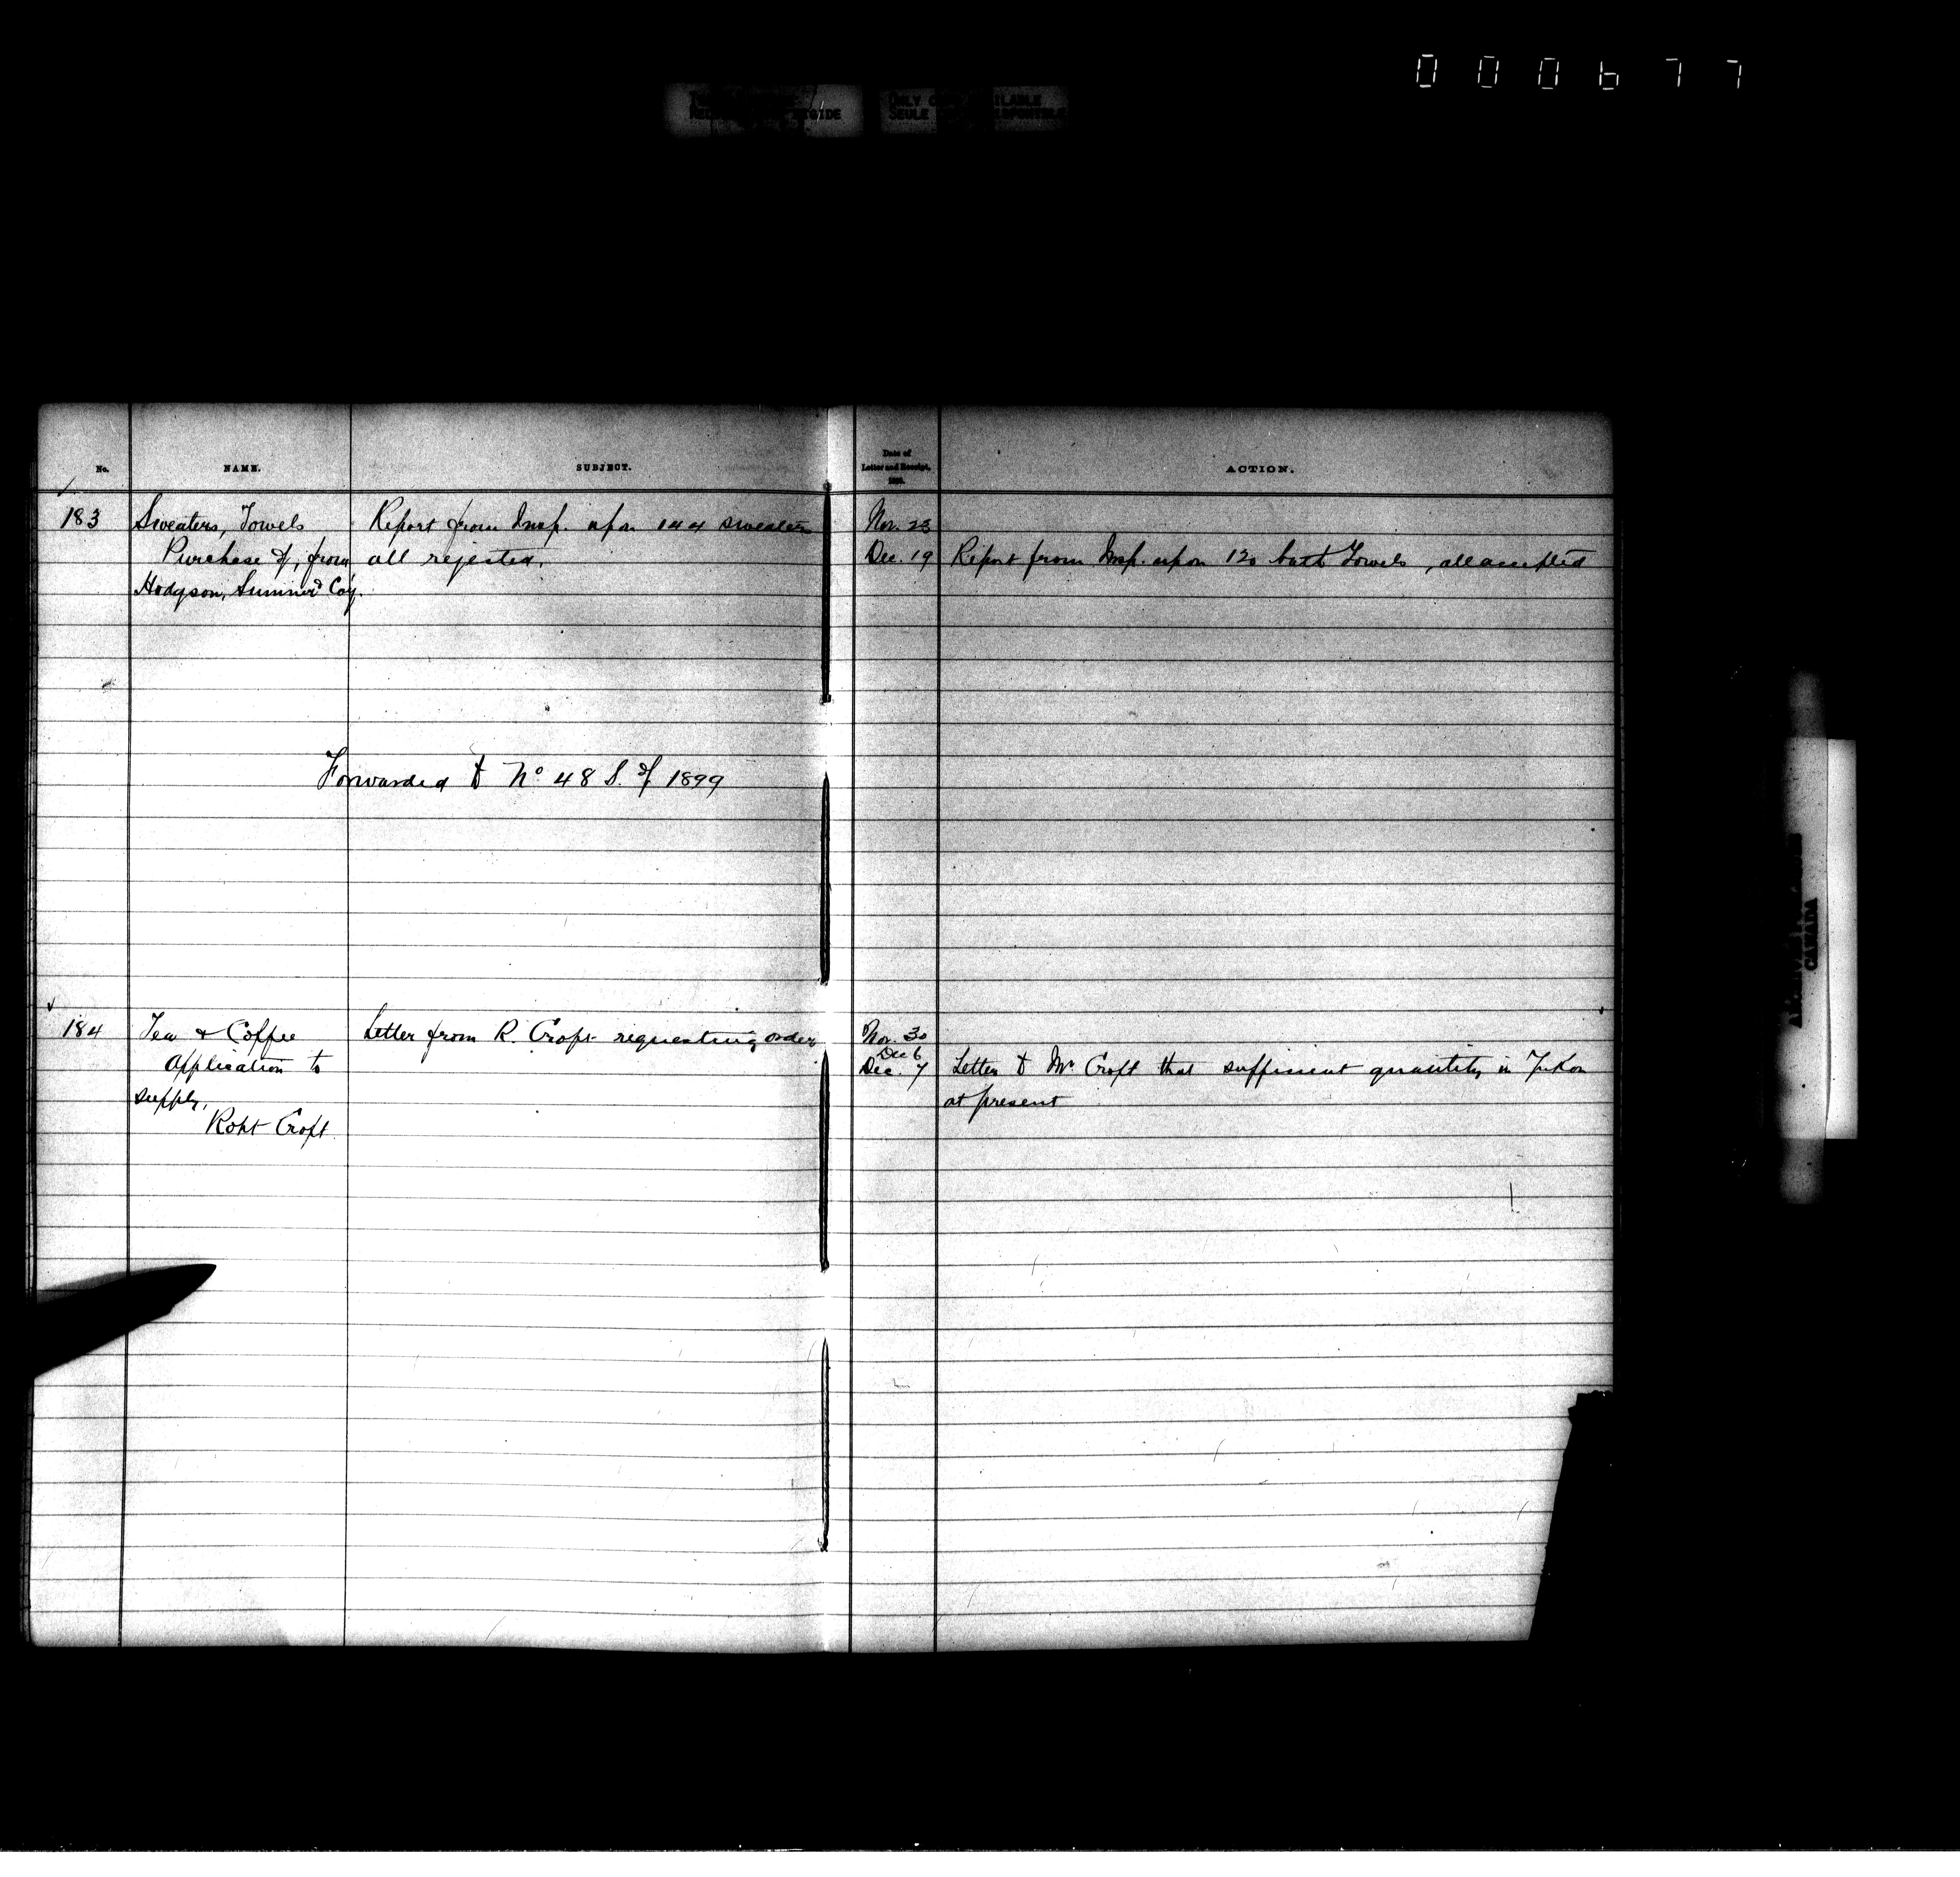 000677
ONLY COPY AVAILABLE
SEULE
No. NAME. SUBJECT. Date of Letter and Receipt, ACTION.
183 Sweaters, Towels Report from Insp. upon 144 sweaters Nov. 23
Purchase of, from all rejected. Dec. 19 Report from Insp. upon 120 bath Towels, all accepted
Hodgson, Sumner Coy.
Forwarded to No 48 S. of 1899
184 Tea & Coffee Letter from R. Croft requesting order Nov. 30
Dec 6
Application to Dec. 7 Letter to Mr Croft that sufficient quantity in Yukon
supply, at present
Robt Croft